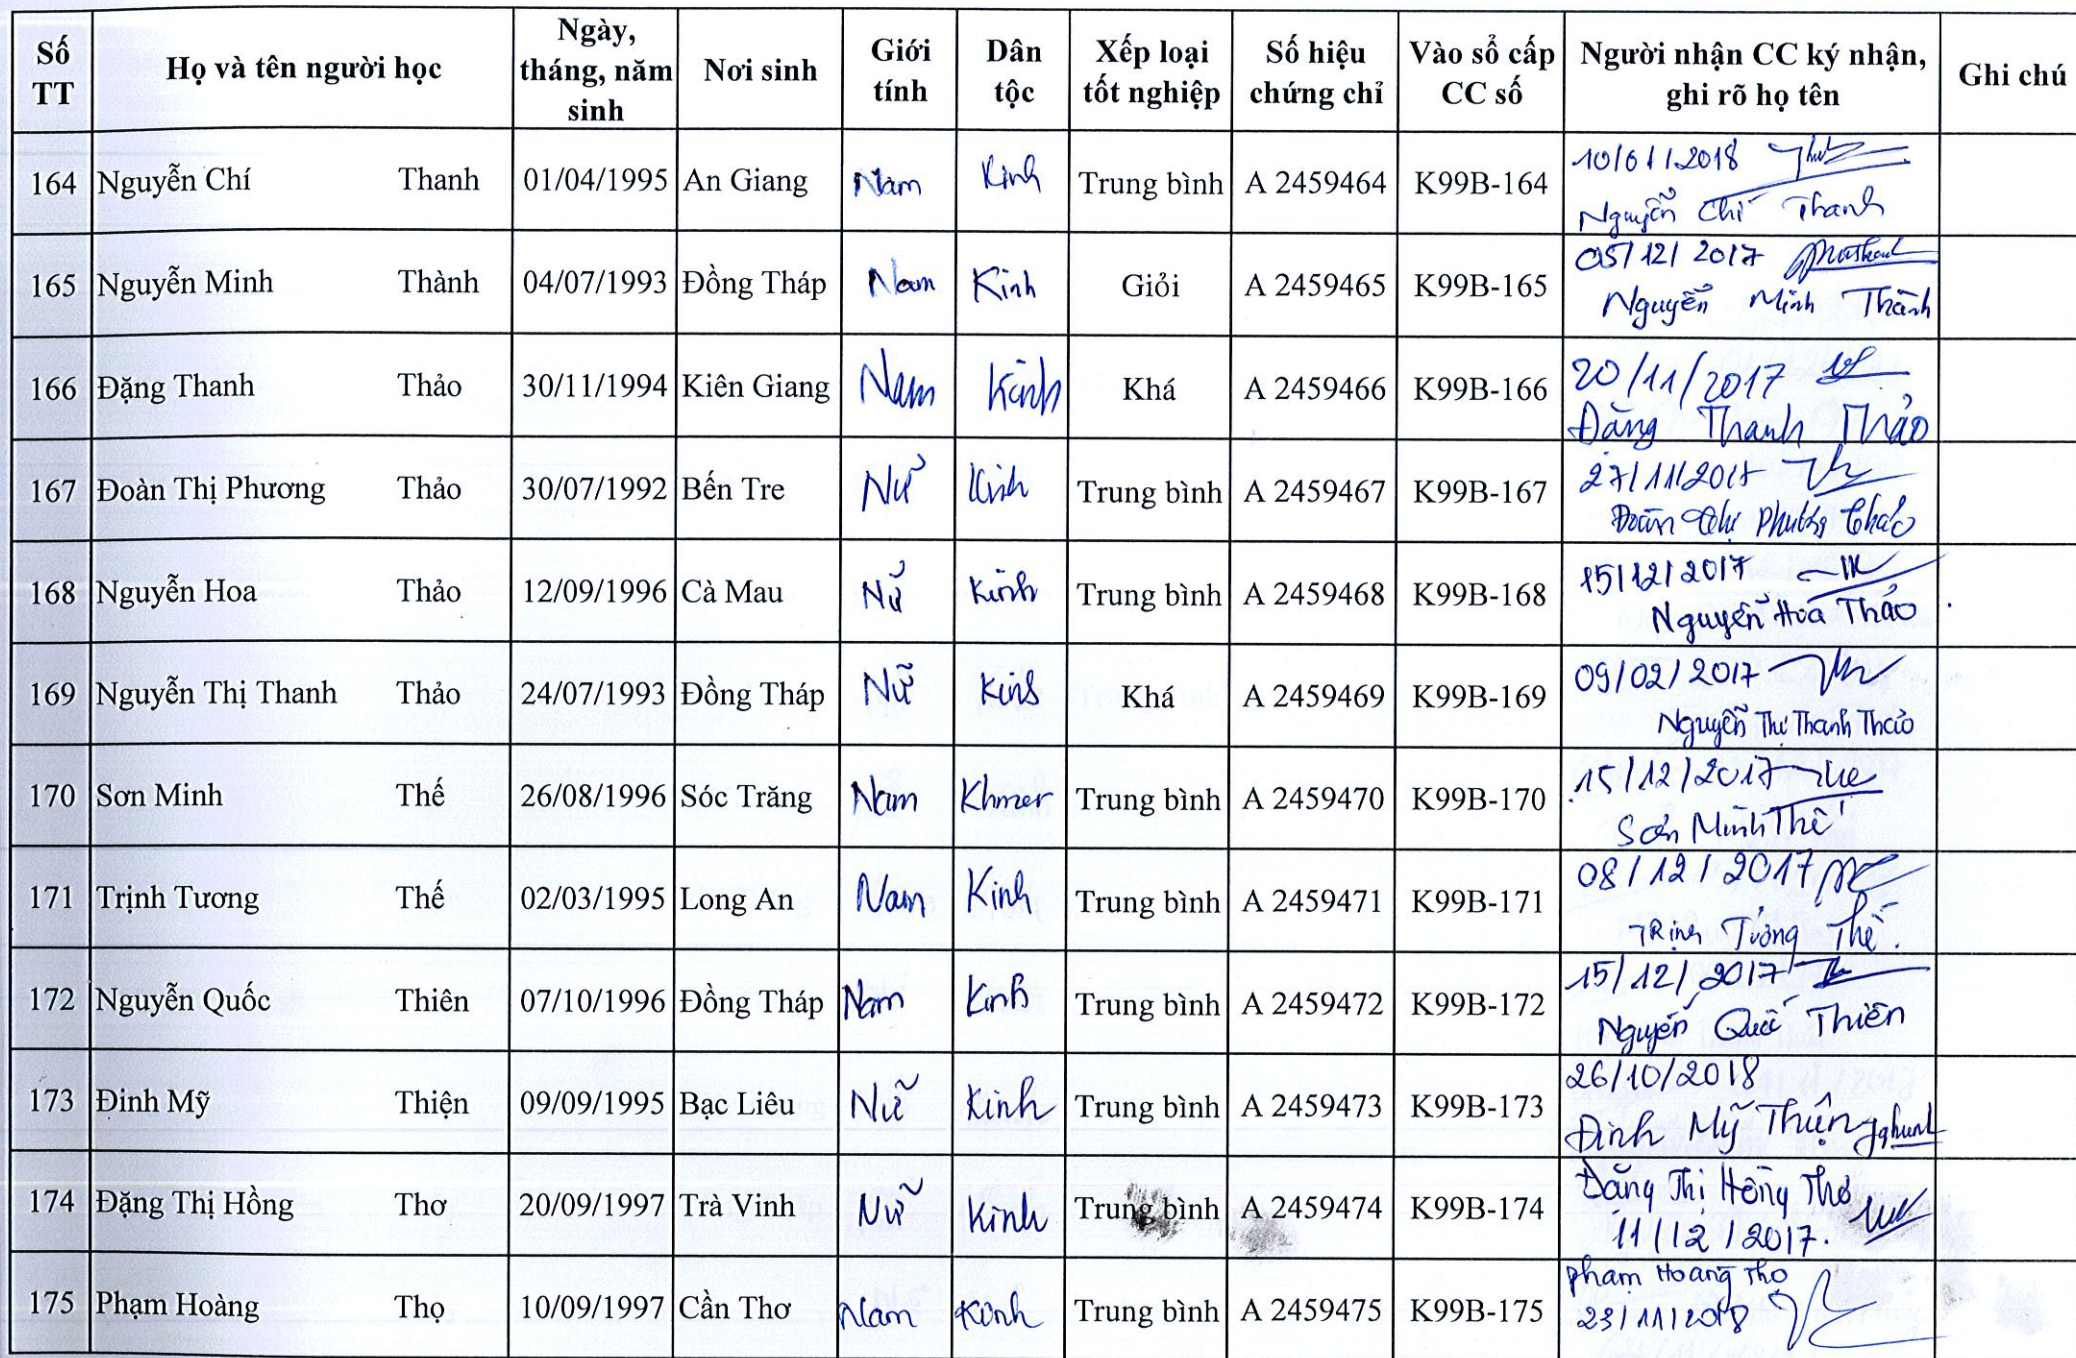 Số TT Họ và tên người học Ngày, tháng, năm sinh Nơi sinh Giới tính Dân tộc Xếp loại tốt nghiệp Số hiệu chứng chỉ Vào sổ cấp CC số Người nhận CC ký nhận, ghi rõ họ tên Ghi chú
164 Nguyễn Chí Thanh 01/04/1995 An Giang Nam Kinh Trung bình A 2459464 K99B-164 10/01/2018
Nguyễn Chí Thanh
165 Nguyễn Minh Thành 04/07/1993 Đồng Tháp Nam Kinh Giỏi A 2459465 K99B-165 05/12/2017
Nguyễn Minh Thành
166 Đặng Thanh Thảo 30/11/1994 Kiên Giang Nam Kinh Khá A 2459466 K99B-166 20/11/2017
Đặng Thanh Thảo
167 Đoàn Thị Phương Thảo 30/07/1992 Bến Tre Nữ Kinh Trung bình A 2459467 K99B-167 27/11/2017
Đoàn Thị Phương Thảo
168 Nguyễn Hoa Thảo 12/09/1996 Cà Mau Nữ Kinh Trung bình A 2459468 K99B-168 15/12/2017
Nguyễn Hoa Thảo
169 Nguyễn Thị Thanh Thảo 24/07/1993 Đồng Tháp Nữ Kinh Khá A 2459469 K99B-169 09/02/2017
Nguyễn Thị Thanh Thảo
170 Sơn Minh Thế 26/08/1996 Sóc Trăng Nam Khmer Trung bình A 2459470 K99B-170 15/12/2017
Sơn Minh Thế
171 Trịnh Tương Thế 02/03/1995 Long An Nam Kinh Trung bình A 2459471 K99B-171 08/12/2017
Trịnh Tương Thế.
172 Nguyễn Quốc Thiên 07/10/1996 Đồng Tháp Nam Kinh Trung bình A 2459472 K99B-172 15/12/2017
Nguyễn Quốc Thiên
173 Đinh Mỹ Thiện 09/09/1995 Bạc Liêu Nữ Kinh Trung bình A 2459473 K99B-173 26/10/2018
Đinh Mỹ Thiện
174 Đặng Thị Hồng Thơ 20/09/1997 Trà Vinh Nữ Kinh Trung bình A 2459474 K99B-174 Đặng Thị Hồng Thơ
11/12/2017.
175 Phạm Hoàng Thọ 10/09/1997 Cần Thơ Nam Kinh Trung bình A 2459475 K99B-175 Phạm Hoàng Thọ
23/11/2018